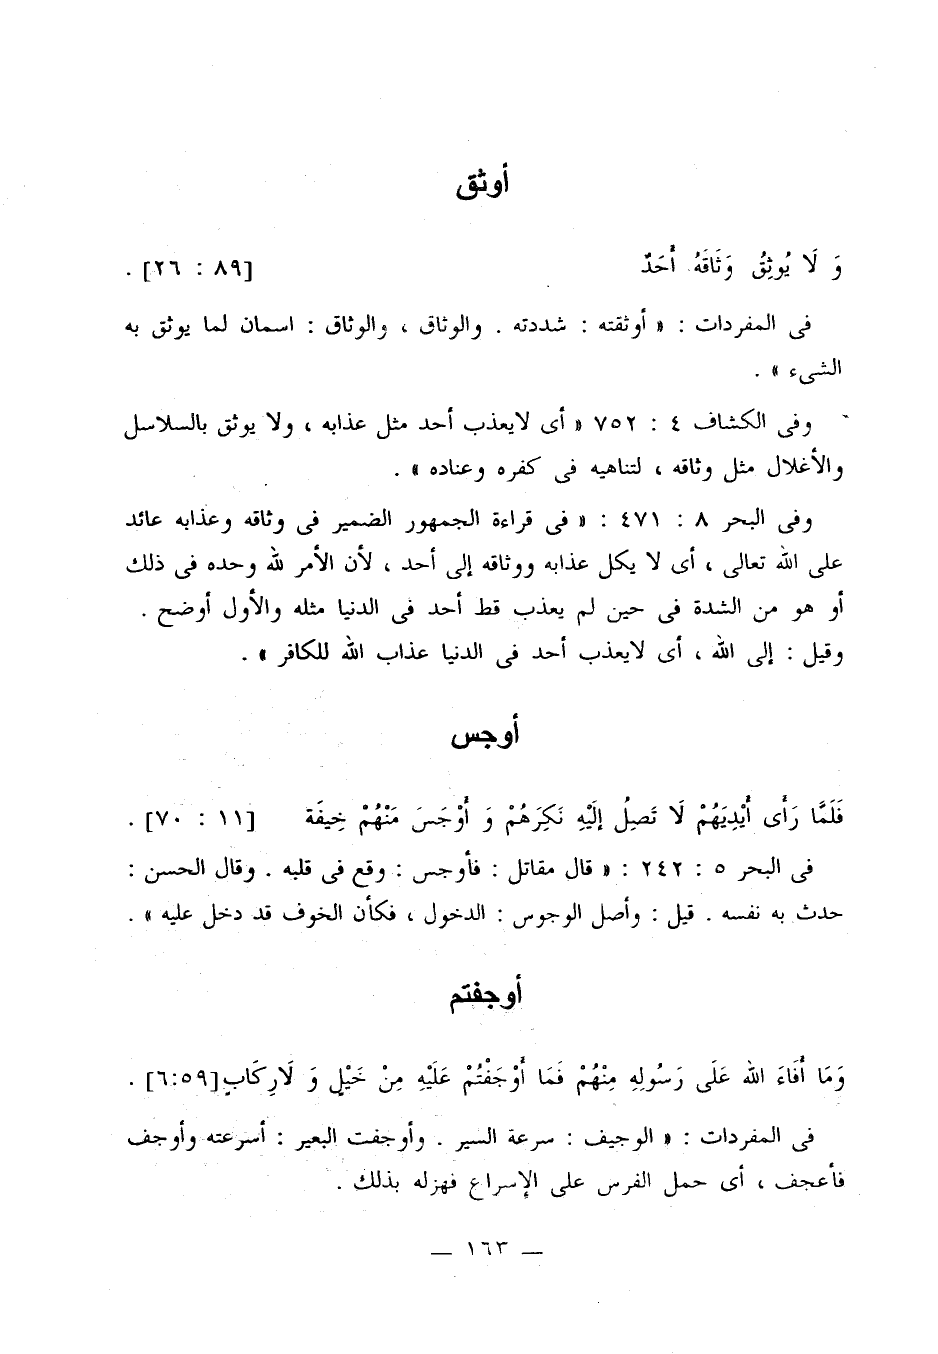 أوثق
وَ لَا يُوثِقُ وَثَاقَهُ أَحَدٌ [٨٩ : ٢٦] .
فى المفردات : « أوثقته : شددته . والوثاق ، والوثاق : اسمان لما يوثق به
الشىء » .
وفى الكشاف ٤ : ٧٥٢ « أى لايعذب أحد مثل عذابه ، ولا يوثق بالسلاسل
والأغلال مثل وثاقه ، لتناهيه فى كفره وعناده » .
وفى البحر ٨ : ٤٧١ : « فى قراءة الجمهور الضمير فى وثاقه وعذابه عائد
على الله تعالى ، أى لا يكل عذابه ووثاقه إلى أحد ، لأن الأمر لله وحده فى ذلك
أو هو من الشدة فى حين لم يعذب قط أحد فى الدنيا مثله والأول أوضح .
وقيل : إلى الله ، أى لايعذب أحد فى الدنيا عذاب الله للكافر » .
أوجس
فَلَمَّا رَأَى أَيْدِيَهُمْ لَا تَصِلُ إِلَيْهِ نَكِرَهُمْ وَ أَوْجَسَ مَنْهُمْ خِيفَة [١١ : ٧٠] .
فى البحر ٥ : ٢٤٢ : « قال مقاتل : فأوجس : وقع فى قلبه . وقال الحسن :
حدث به نفسه . قيل : وأصل الوجوس : الدخول ، فكأن الخوف قد دخل عليه » .
أوجفتم
وَمَا أَفَاءَ الله عَلَى رَسُولِهِ مِنْهُمْ فَمَا أَوْجَفْتُمْ عَلَيْهِ مِنْ خَيْلٍ وَ لَارِكَابٍ [٦:٥٩] .
فى المفردات : « الوجيف : سرعة السير . وأوجفت البعير : أسرعته وأوجف
فأعجف ، أى حمل الفرس على الإسراع فهزله بذلك .
— ١٦٣ —